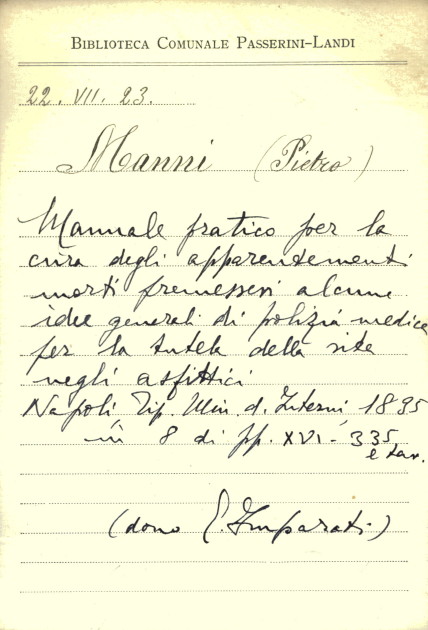 BIBLIOTECA COMUNALE PASSERINI-LANDI
22. VII. 23.
Manni (Pietro)
Manuale pratico per la
cura degli apparentementi
morti premessevi alcune
idee generali di polizia medica
per la tutela della vita
negli asfittici
Napoli Tip. Min. d. Interni 1835
in 8 di pp. XVI-335
e tav.
(dono E. Imparati)